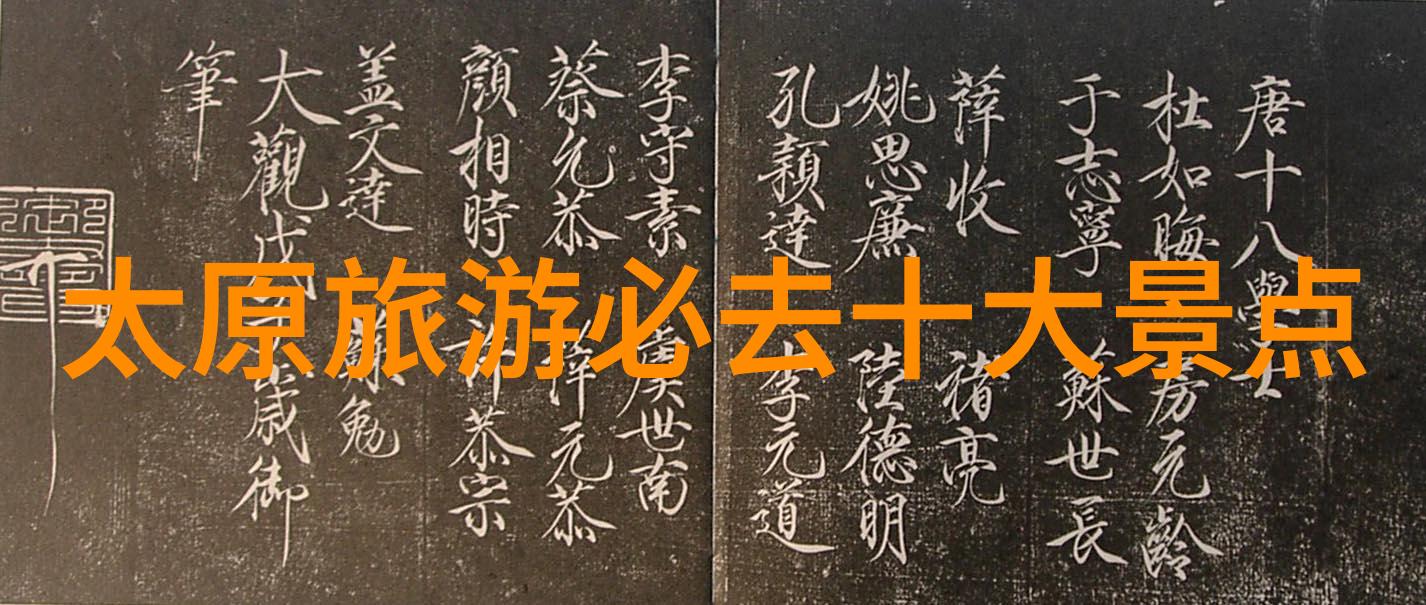 太原旅游必去十大景点
唐十八學士
杜如晦 房元齡
于志寧 穌世長
薛收 褚亮
姚思廉 陸德明
孔穎達 李元道
李守素 虞世南
蔡允恭 薛元恭
顏相時 許恭宗
盖文達 蘇勉
大觀戊子歲御
筆